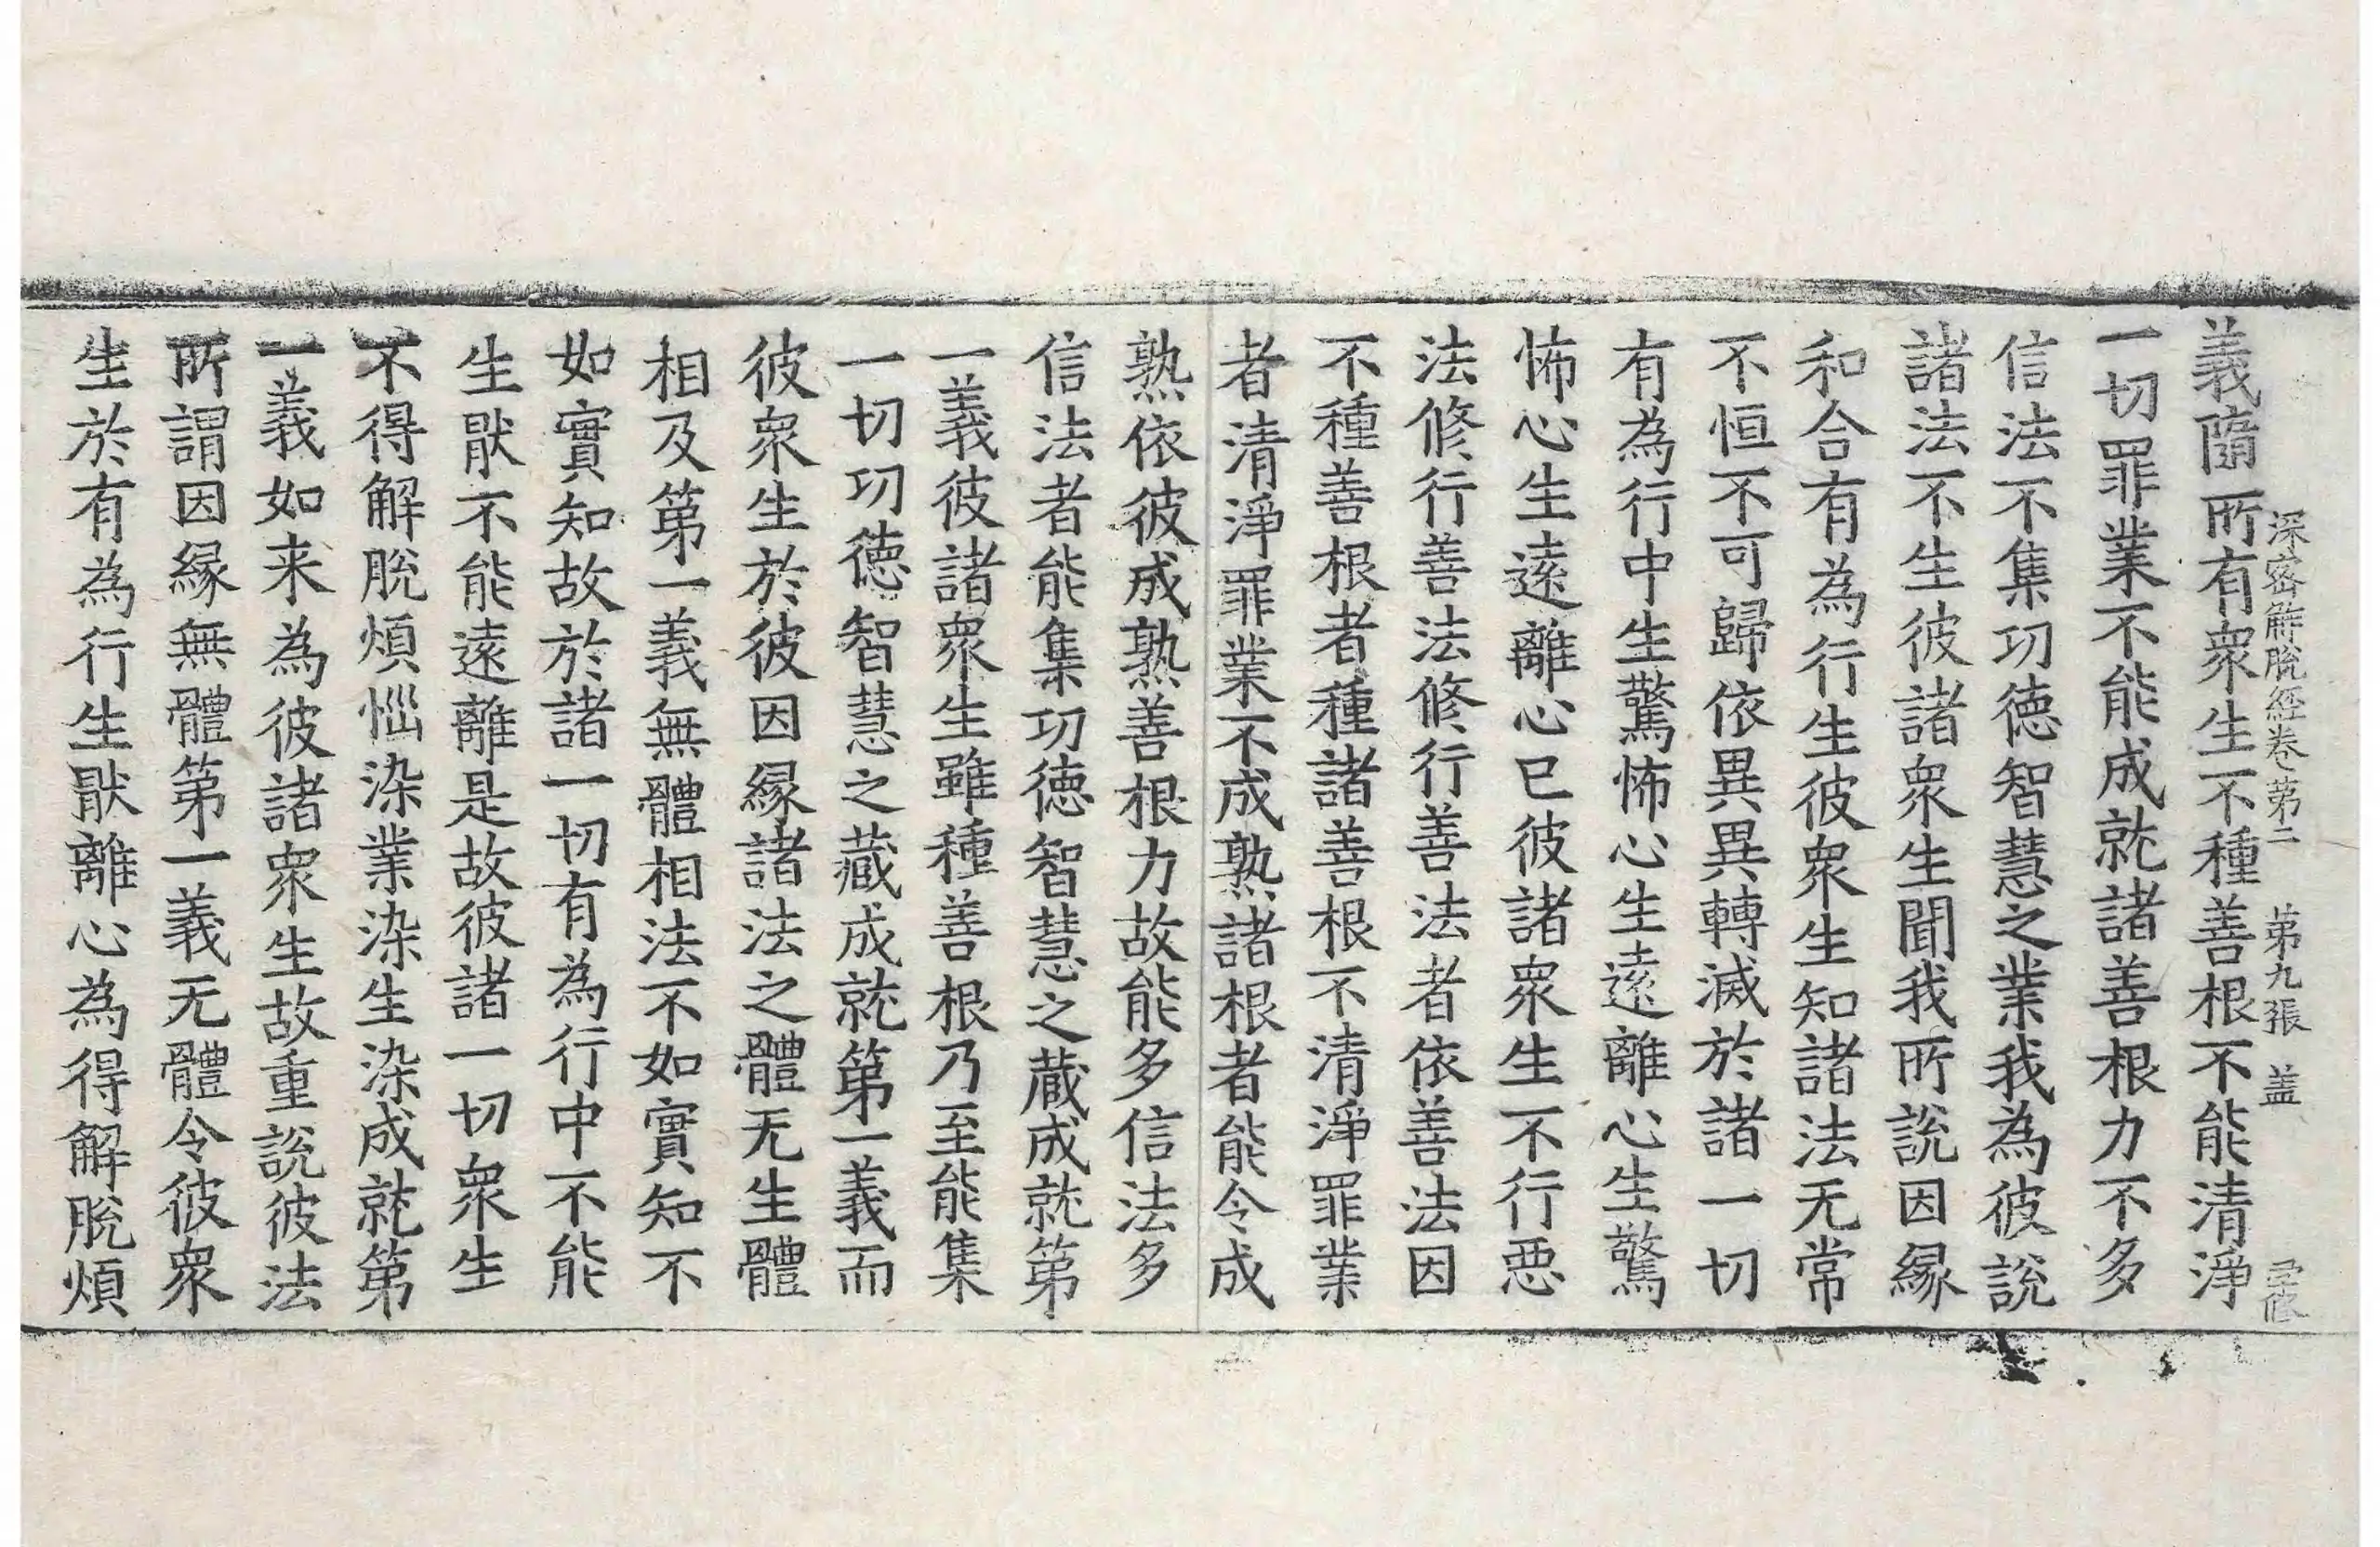 深密解脫經卷第二　第九張　盖
義隨所有衆生不種善根不能清淨
一切罪業不能成就諸善根力不多
信法不集功德智慧之業我為彼說
諸法不生彼諸衆生聞我所說因緣
和合有為行生彼衆生知諸法无常
不恒不可歸依異異轉滅於諸一切
有為行中生驚怖心生遠離心生驚
怖心生遠離心已彼諸衆生不行惡
法修行善法修行善法者依善法因
不種善根者種諸善根不清淨罪業
者清淨罪業不成熟諸根者能令成
熟依彼成熟善根力故能多信法多
信法者能集功德智慧之蔵成就第
一義彼諸衆生雖種善根乃至能集
一切功德智慧之藏成就第一義而
彼衆生於彼因緣諸法之體无生體
相及第一義無體相法不如實知不
如實知故於諸一切有為行中不能
生猒不能遠離是故彼諸一切衆生
不得解脫煩惱染業染生染成就第
一義如来為彼諸衆生故重說彼法
所謂因緣無體第一義无體令彼衆
生於有為行生猒離心為得解脫煩